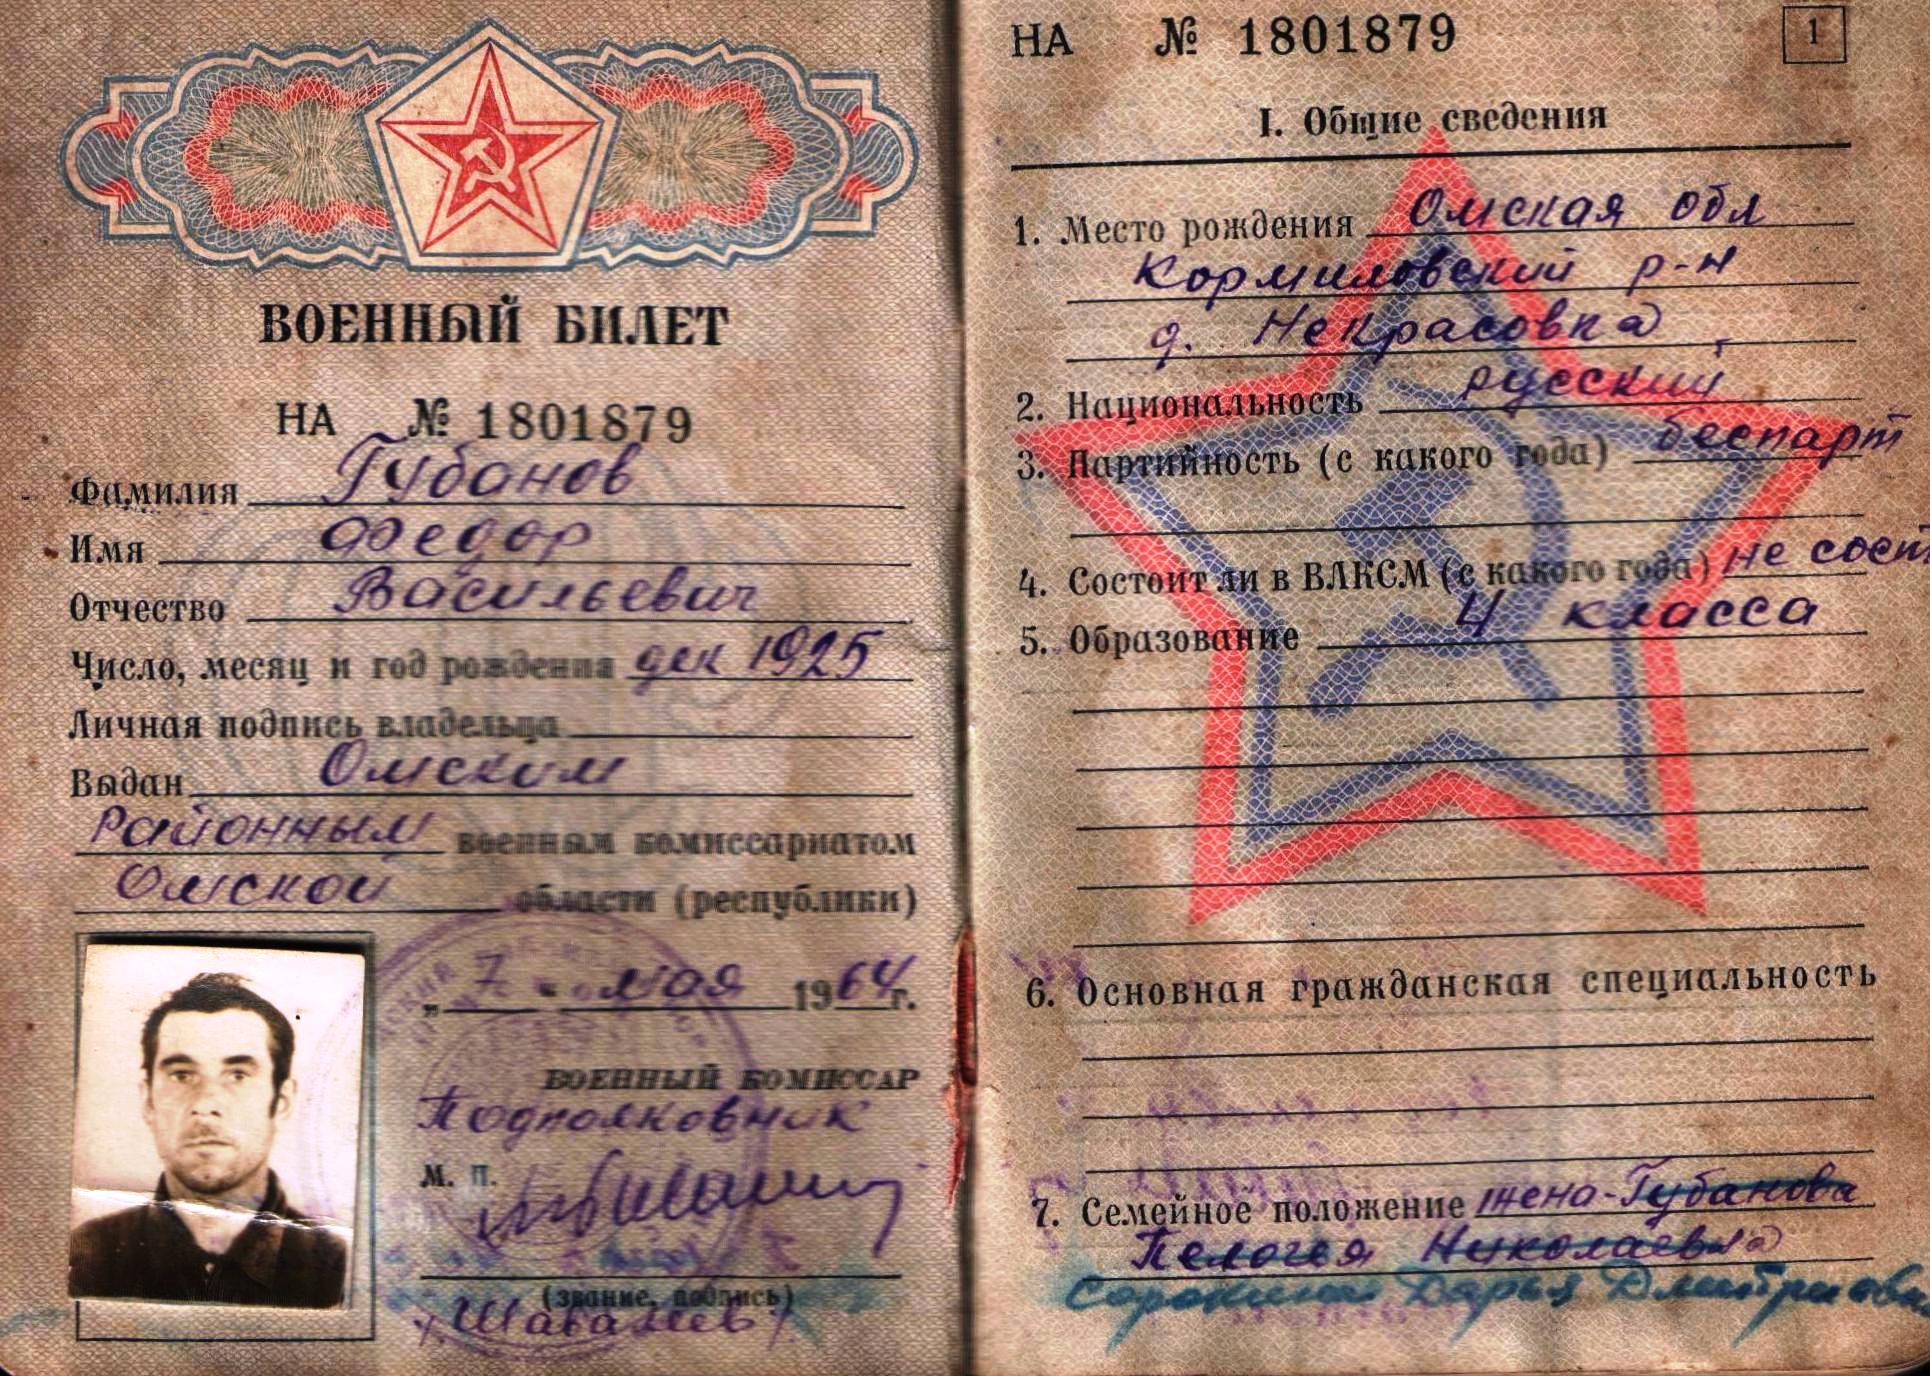 ВОЕННЫЙ БИЛЕТ
НА № 1801879
Фамилия Губанов
Имя Федор
Отчество Васильевич
Число, месяц и год рождения дек 1925
Личная подпись владельца
Выдан Омским
Районным военным комиссариатом
Омской области (республики)
„ 7 “ мая 1964 г.
ВОЕННЫЙ КОМИССАР
Подполковник
М. П.
(звание, подпись)
НА № 1801879
1
I. Общие сведения
1. Место рождения Омская обл
Кормиловский р-н
д. Некрасовка
2. Национальность русский
3. Партийность (с какого года) беспарт
4. Состоит ли в ВЛКСМ (с какого года) не сост
5. Образование 4 класса
6. Основная гражданская специальность
7. Семейное положение жена-Губанова
Пелогея Николаевна
Дарья Дмитриевна